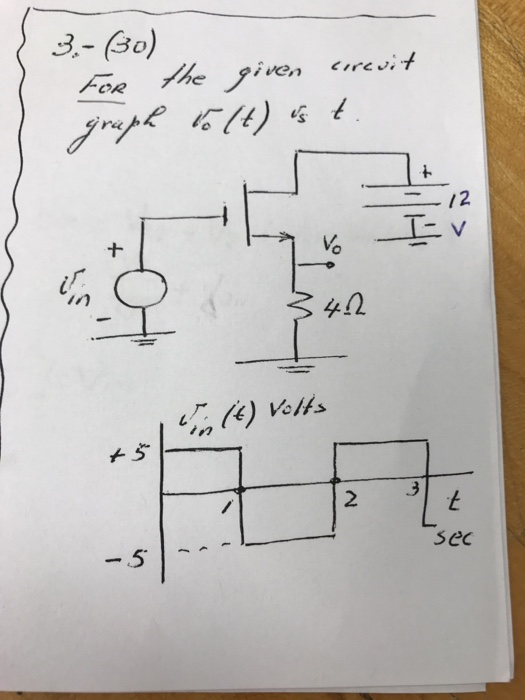 3.- (30)
FOR the given circuit
graph vo(t) vs t.
+
12
-
V
+
vin
-
Vo
4Ω
vin(t) Volts
+5
1
2
3
t
sec
-5